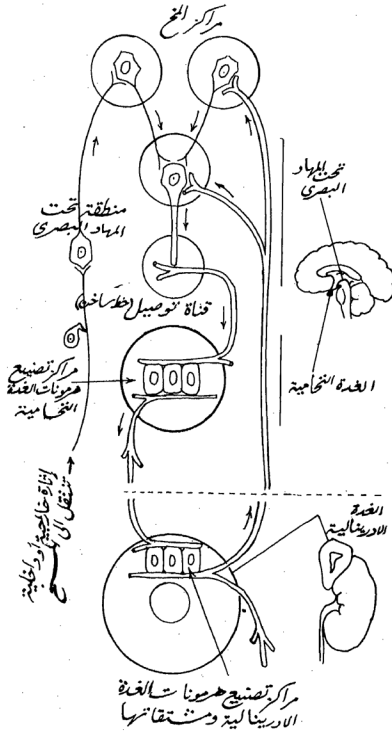 مراكز المخ
تحت المهاد
البصري
منطقة تحت
المهاد البصري
قناة توصيل (خط ساخن)
الغدة النخامية
مراكز تصنيع
هرمونات الغدة
النخامية
إثارة خارجية أو داخلية
تنتقل الى
الغدة
الادرينالية
مراكز تصنيع هرمونات الغدة
الادرينالية ومشتقاتها